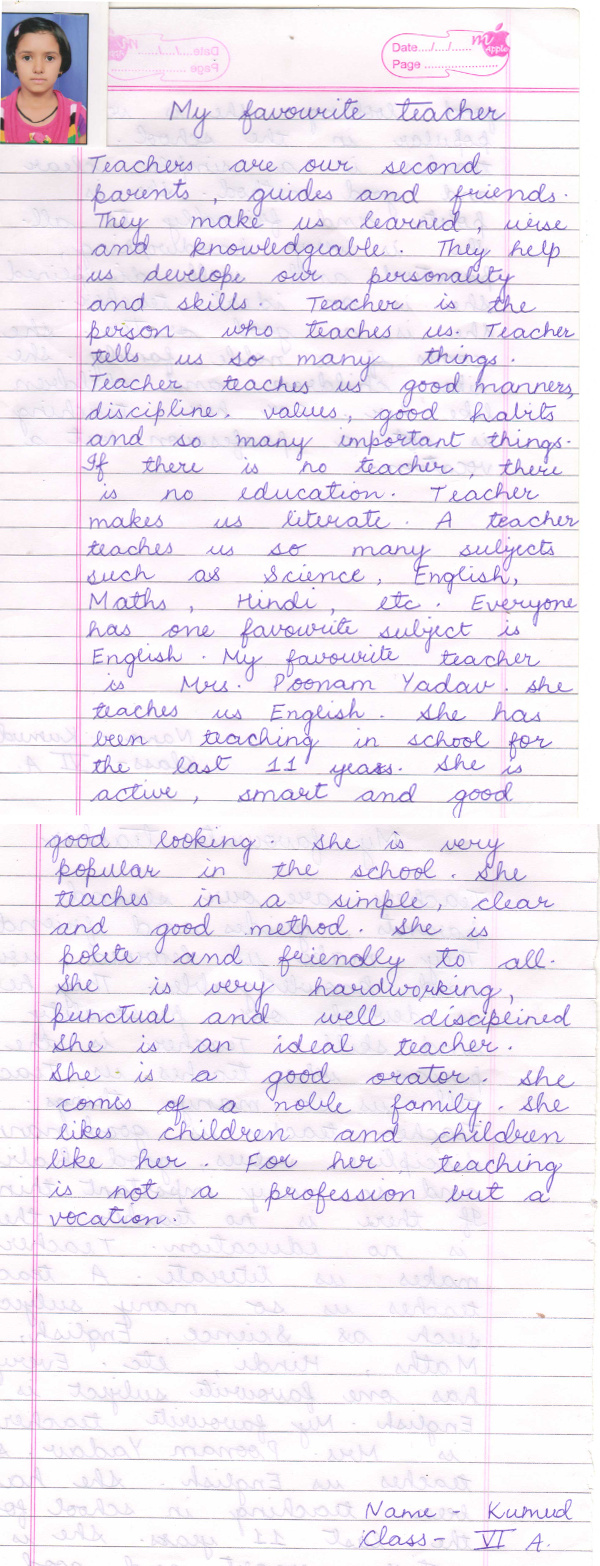 Date..../..../......
Page ......................
m
Apple
My favourite teacher
Teachers are our second
parents, guides and friends.
They make us learned, wise
and knowledgeable. They help
us develope our personality
and skills. Teacher is the
person who teaches us. Teacher
tells us so many things.
Teacher teaches us good manners,
discipline. values, good habits
and so many important things.
If there is no teacher, there
is no education. Teacher
makes us literate. A teacher
teaches us so many subjects
such as Science, English,
Maths, Hindi, etc. Everyone
has one favourite subject is
English. My favourite teacher
is Mrs. Poonam Yadav. she
teaches us English. she has
been teaching in school for
the last 11 years. she is
active, smart and good
good looking. she is very
popular in the school. She
teaches in a simple, clear
and good method. She is
polite and friendly to all.
She is very hardworking,
punctual and well discipeined
She is an ideal teacher.
She is a good orator. she
comes of a noble family. she
likes children and children
like her. For her teaching
is not a profession but a
vocation.
Name - Kumud
Class - VI A.